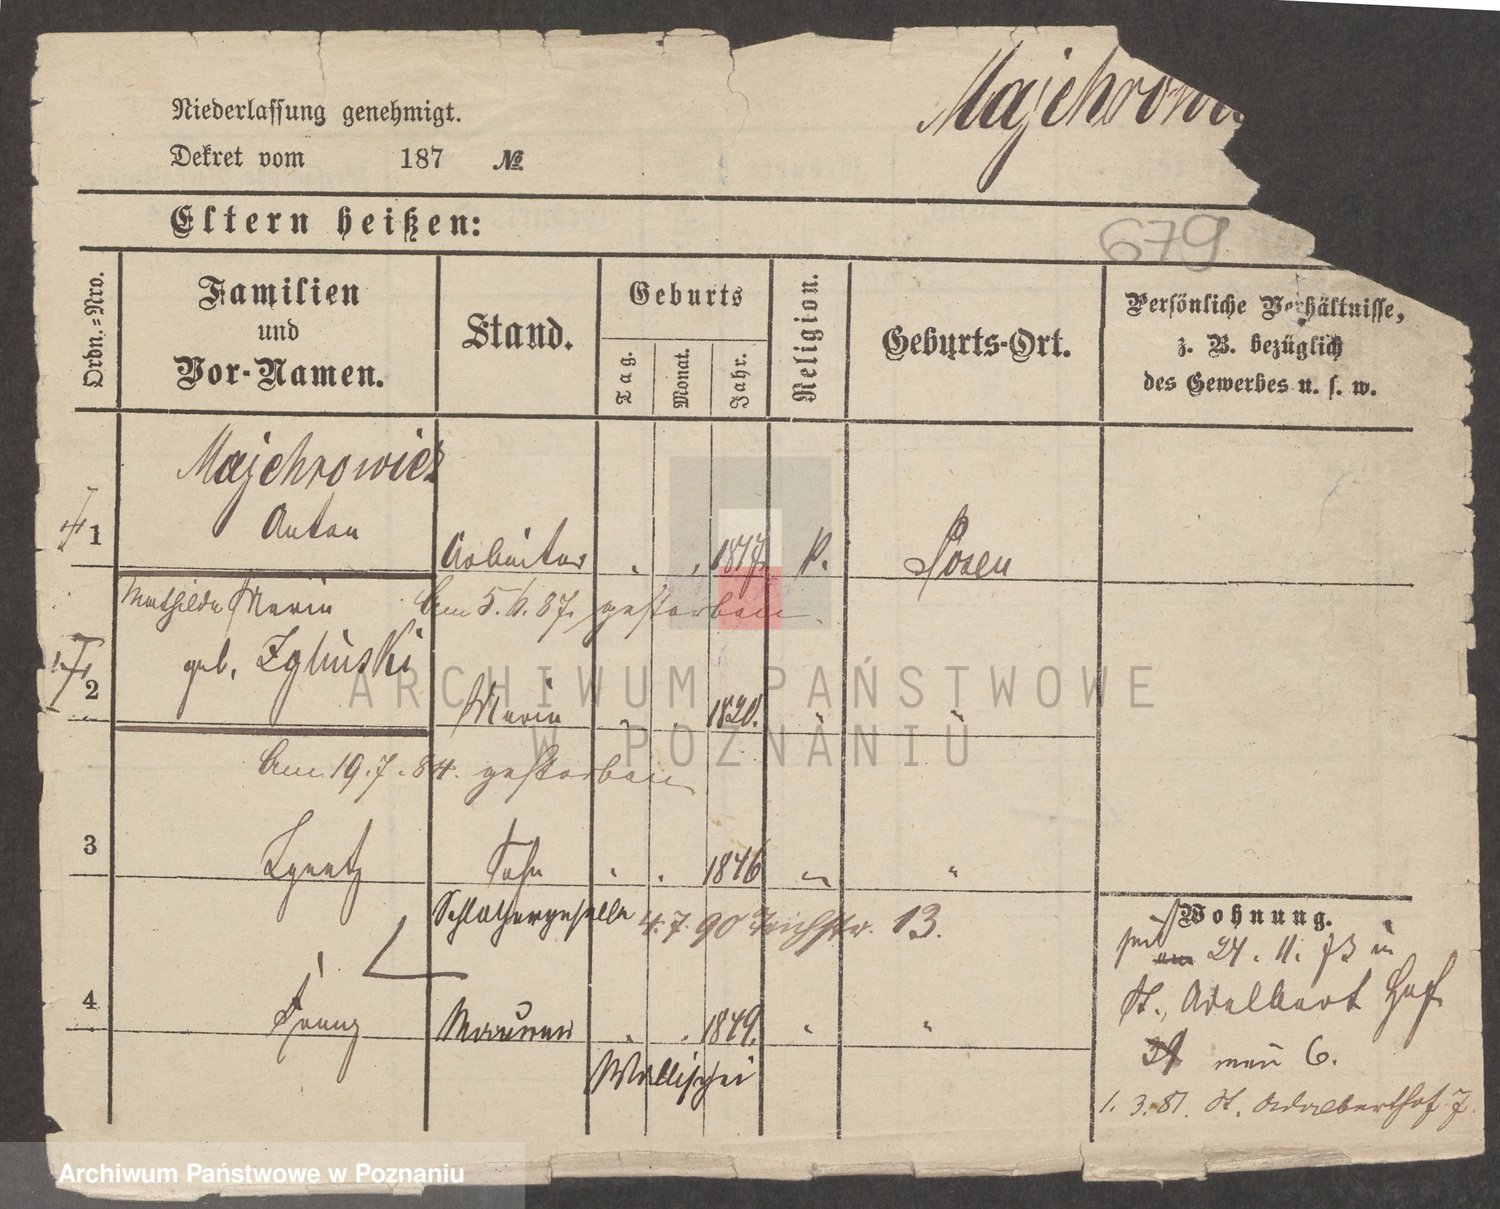 Majchrowi
Niederlassung genehmigt.
Dekret vom 187 №
Eltern heißen:
679
Ordn.=Nro.
Familien
und
Vor-Namen.
Stand.
Geburts
Tag.
Monat.
Jahr.
Religion.
Geburts-Ort.
Persönliche Verhältnisse,
z. B. bezüglich
des Gewerbes u. s. w.
Majchrowicz
1 Anton Arbeiter 1817. Posen
Mathilde Maria Am 5. 6. 87. gestorben
geb. Zglinski
2 1820.
Am 19. 7. 84. gestorben
3 Ignatz Sohn " . 1846 " "
Schlossergeselle 4. 7. 90 Teichstr. 13.
4 Franz Maurer " . 1849. " "
Wallischei
Wohnung.
seit 24. 11. 73 in
St. Adalbert Hof
neu 6.
1. 3. 81. St. Adalberthof 7.
ARCHIWUM PAŃSTWOWE
W POZNANIU
Archiwum Państwowe w Poznaniu